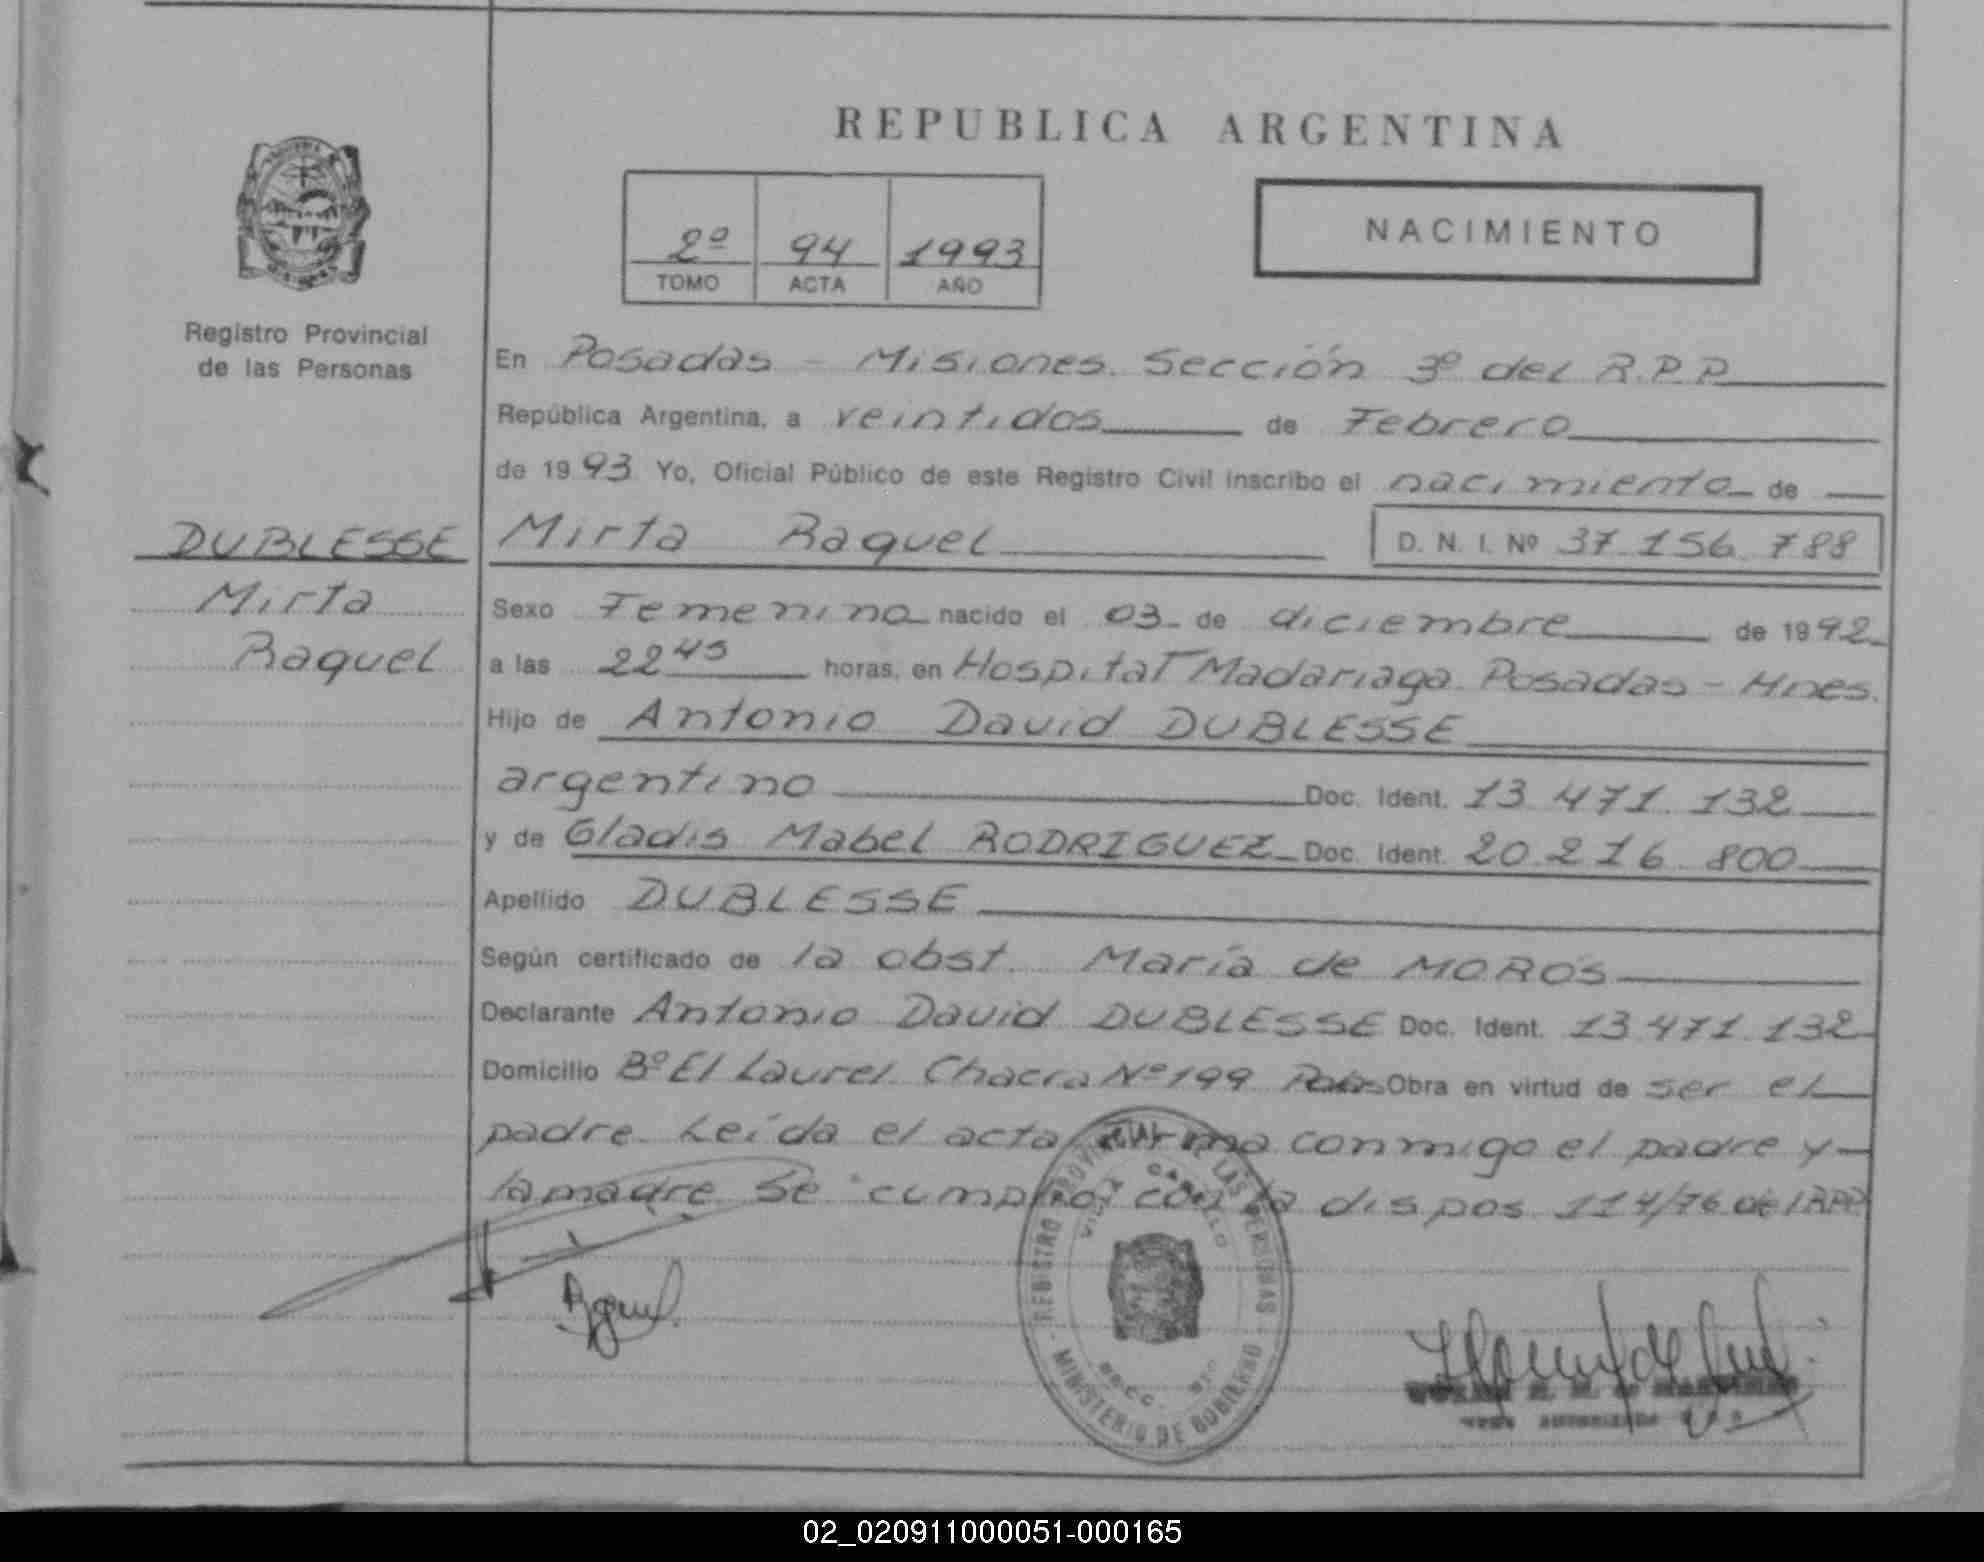 REPUBLICA ARGENTINA
2º 94 1993
TOMO ACTA AÑO
NACIMIENTO
Registro Provincial
de las Personas
DUBLESSE
Mirta
Raquel
En Posadas - Misiones. Sección 3º del R.P.P.
República Argentina, a veintidos de Febrero
de 1993 Yo, Oficial Público de este Registro Civil inscribo el nacimiento de
Mirta Raquel D. N. I. Nº 37.156.788
Sexo Femenino nacido el 03 de diciembre de 1992
a las 22 45 horas, en Hospital Madariaga Posadas - Mnes.
Hijo de Antonio David DUBLESSE
argentino Doc. Ident. 13.471.132
y de Gladis Mabel RODRIGUEZ Doc. Ident. 20.216.800
Apellido DUBLESSE
Según certificado de la obst. María de MOROS
Declarante Antonio David DUBLESSE Doc. Ident. 13.471.132
Domicilio Bº El Laurel Chacra Nº 199 Obra en virtud de ser el
padre. Leída el acta firma conmigo el padre y
la madre Se cumplió con la dispos. 114/76 del RPP
REGISTRO PROVINCIAL DE LAS PERSONAS
VILLA CABELLO
MINISTERIO DE GOBIERNO
02_020911000051-000165